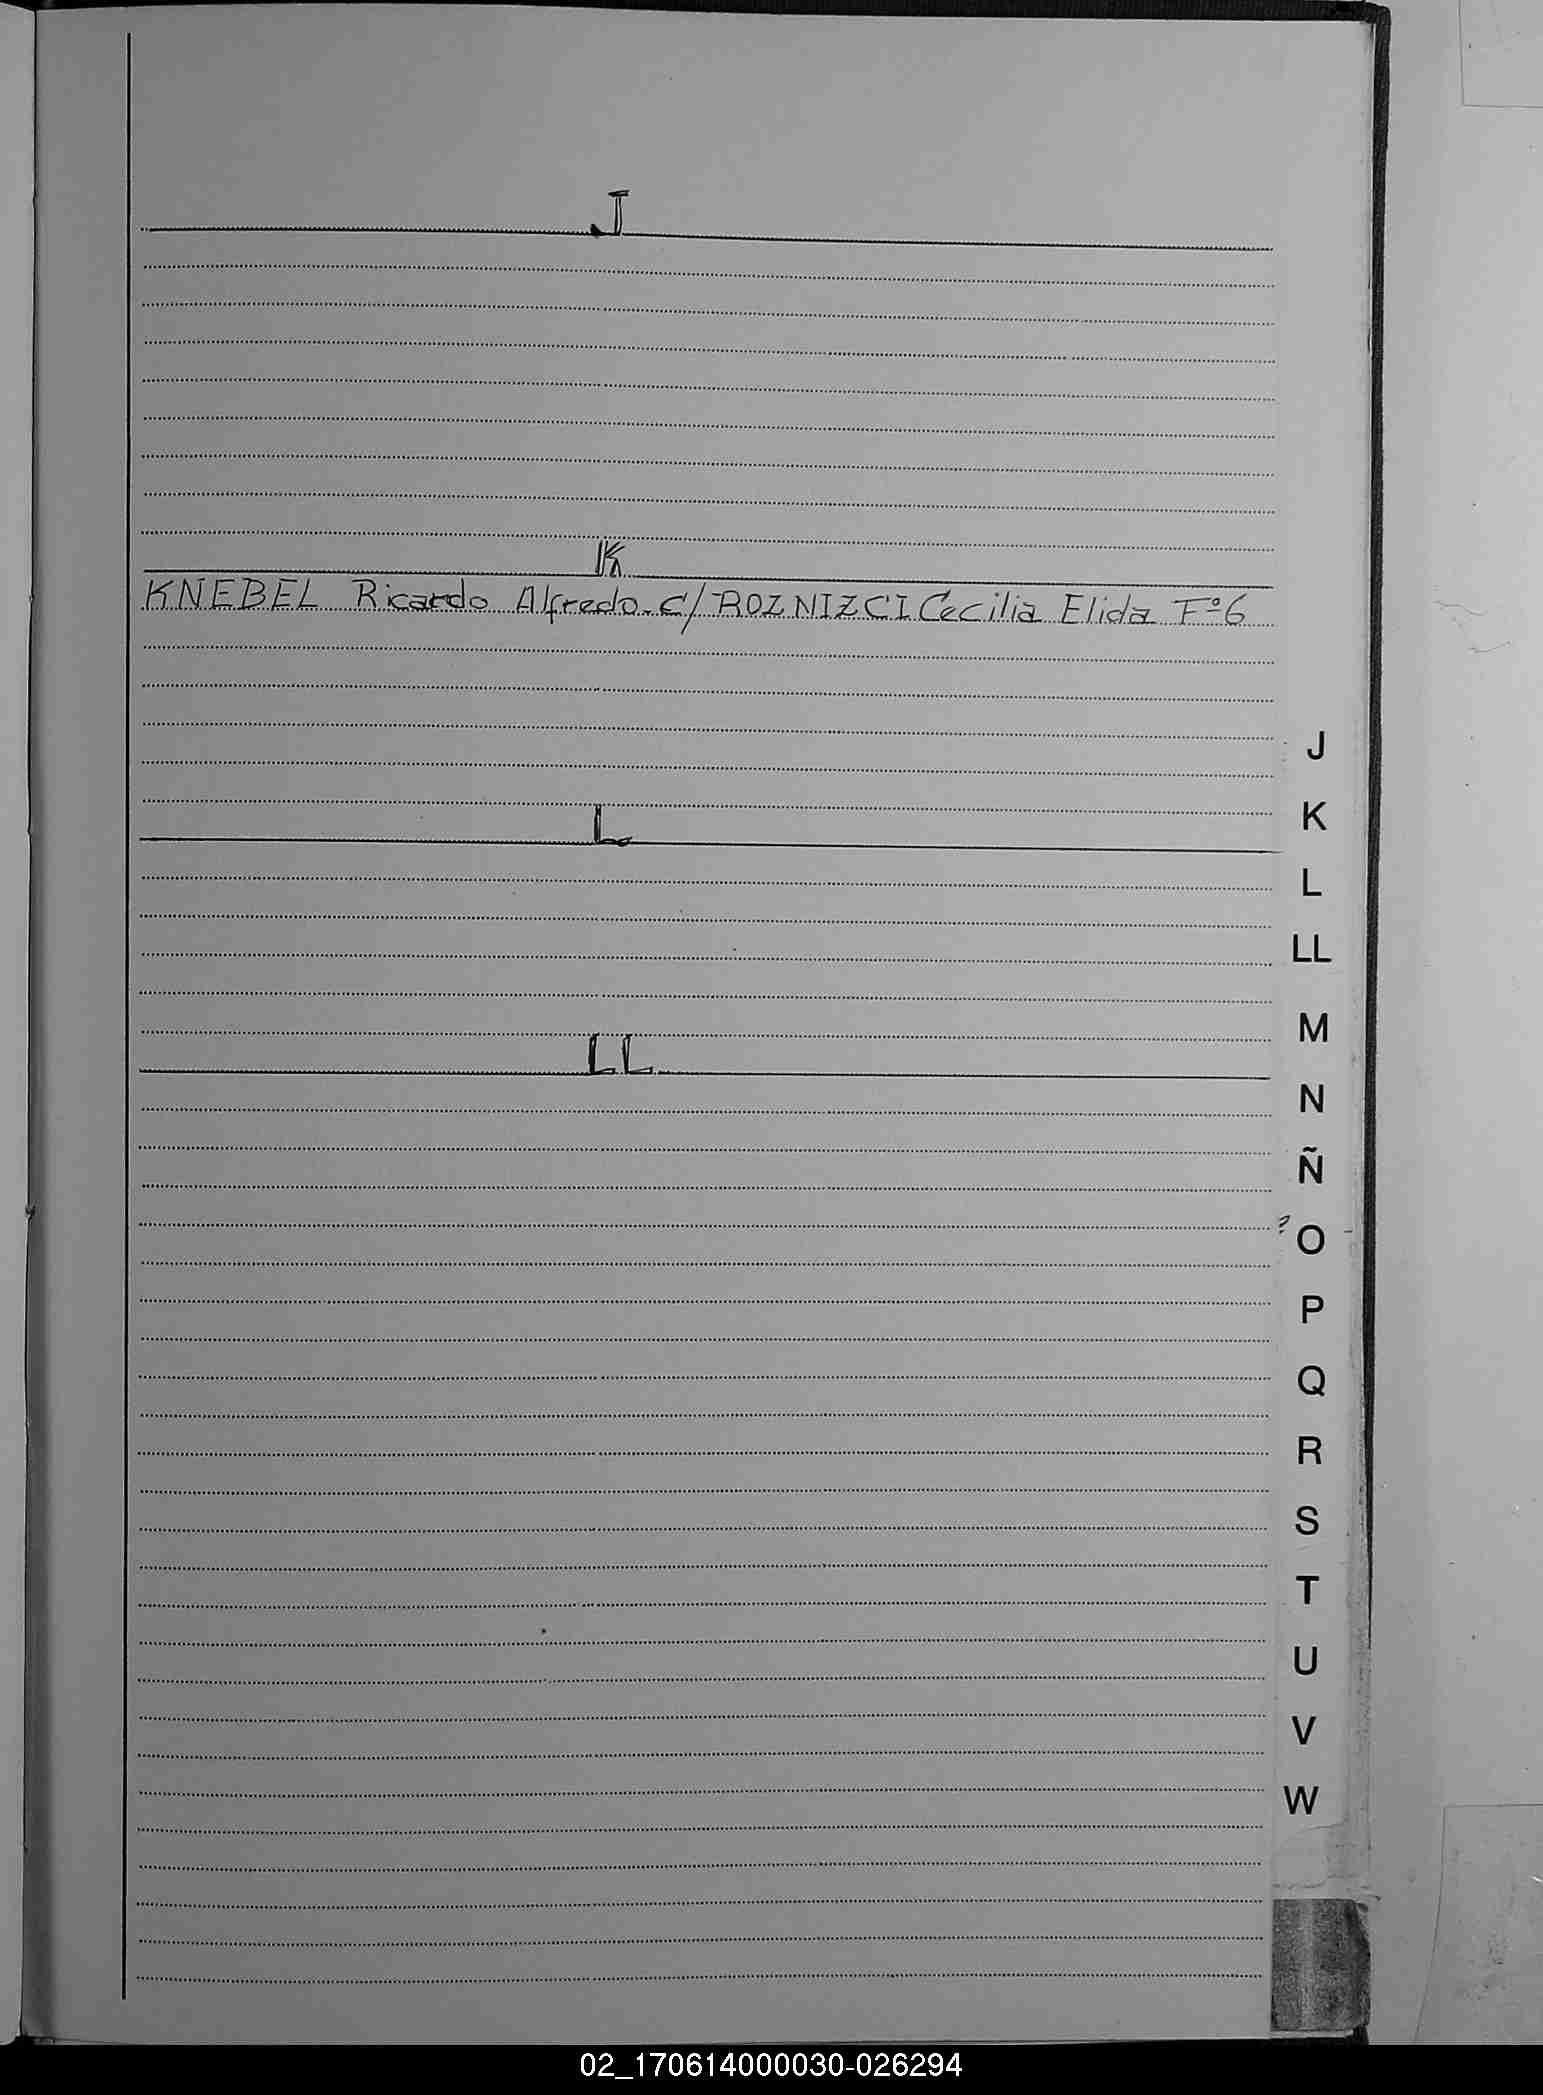 J
K
KNEBEL Ricardo Alfredo. C/ ROZNIZCI Cecilia Elida Fº6
L
LL
J
K
L
LL
M
N
Ñ
O
P
Q
R
S
T
U
V
W
02_170614000030-026294